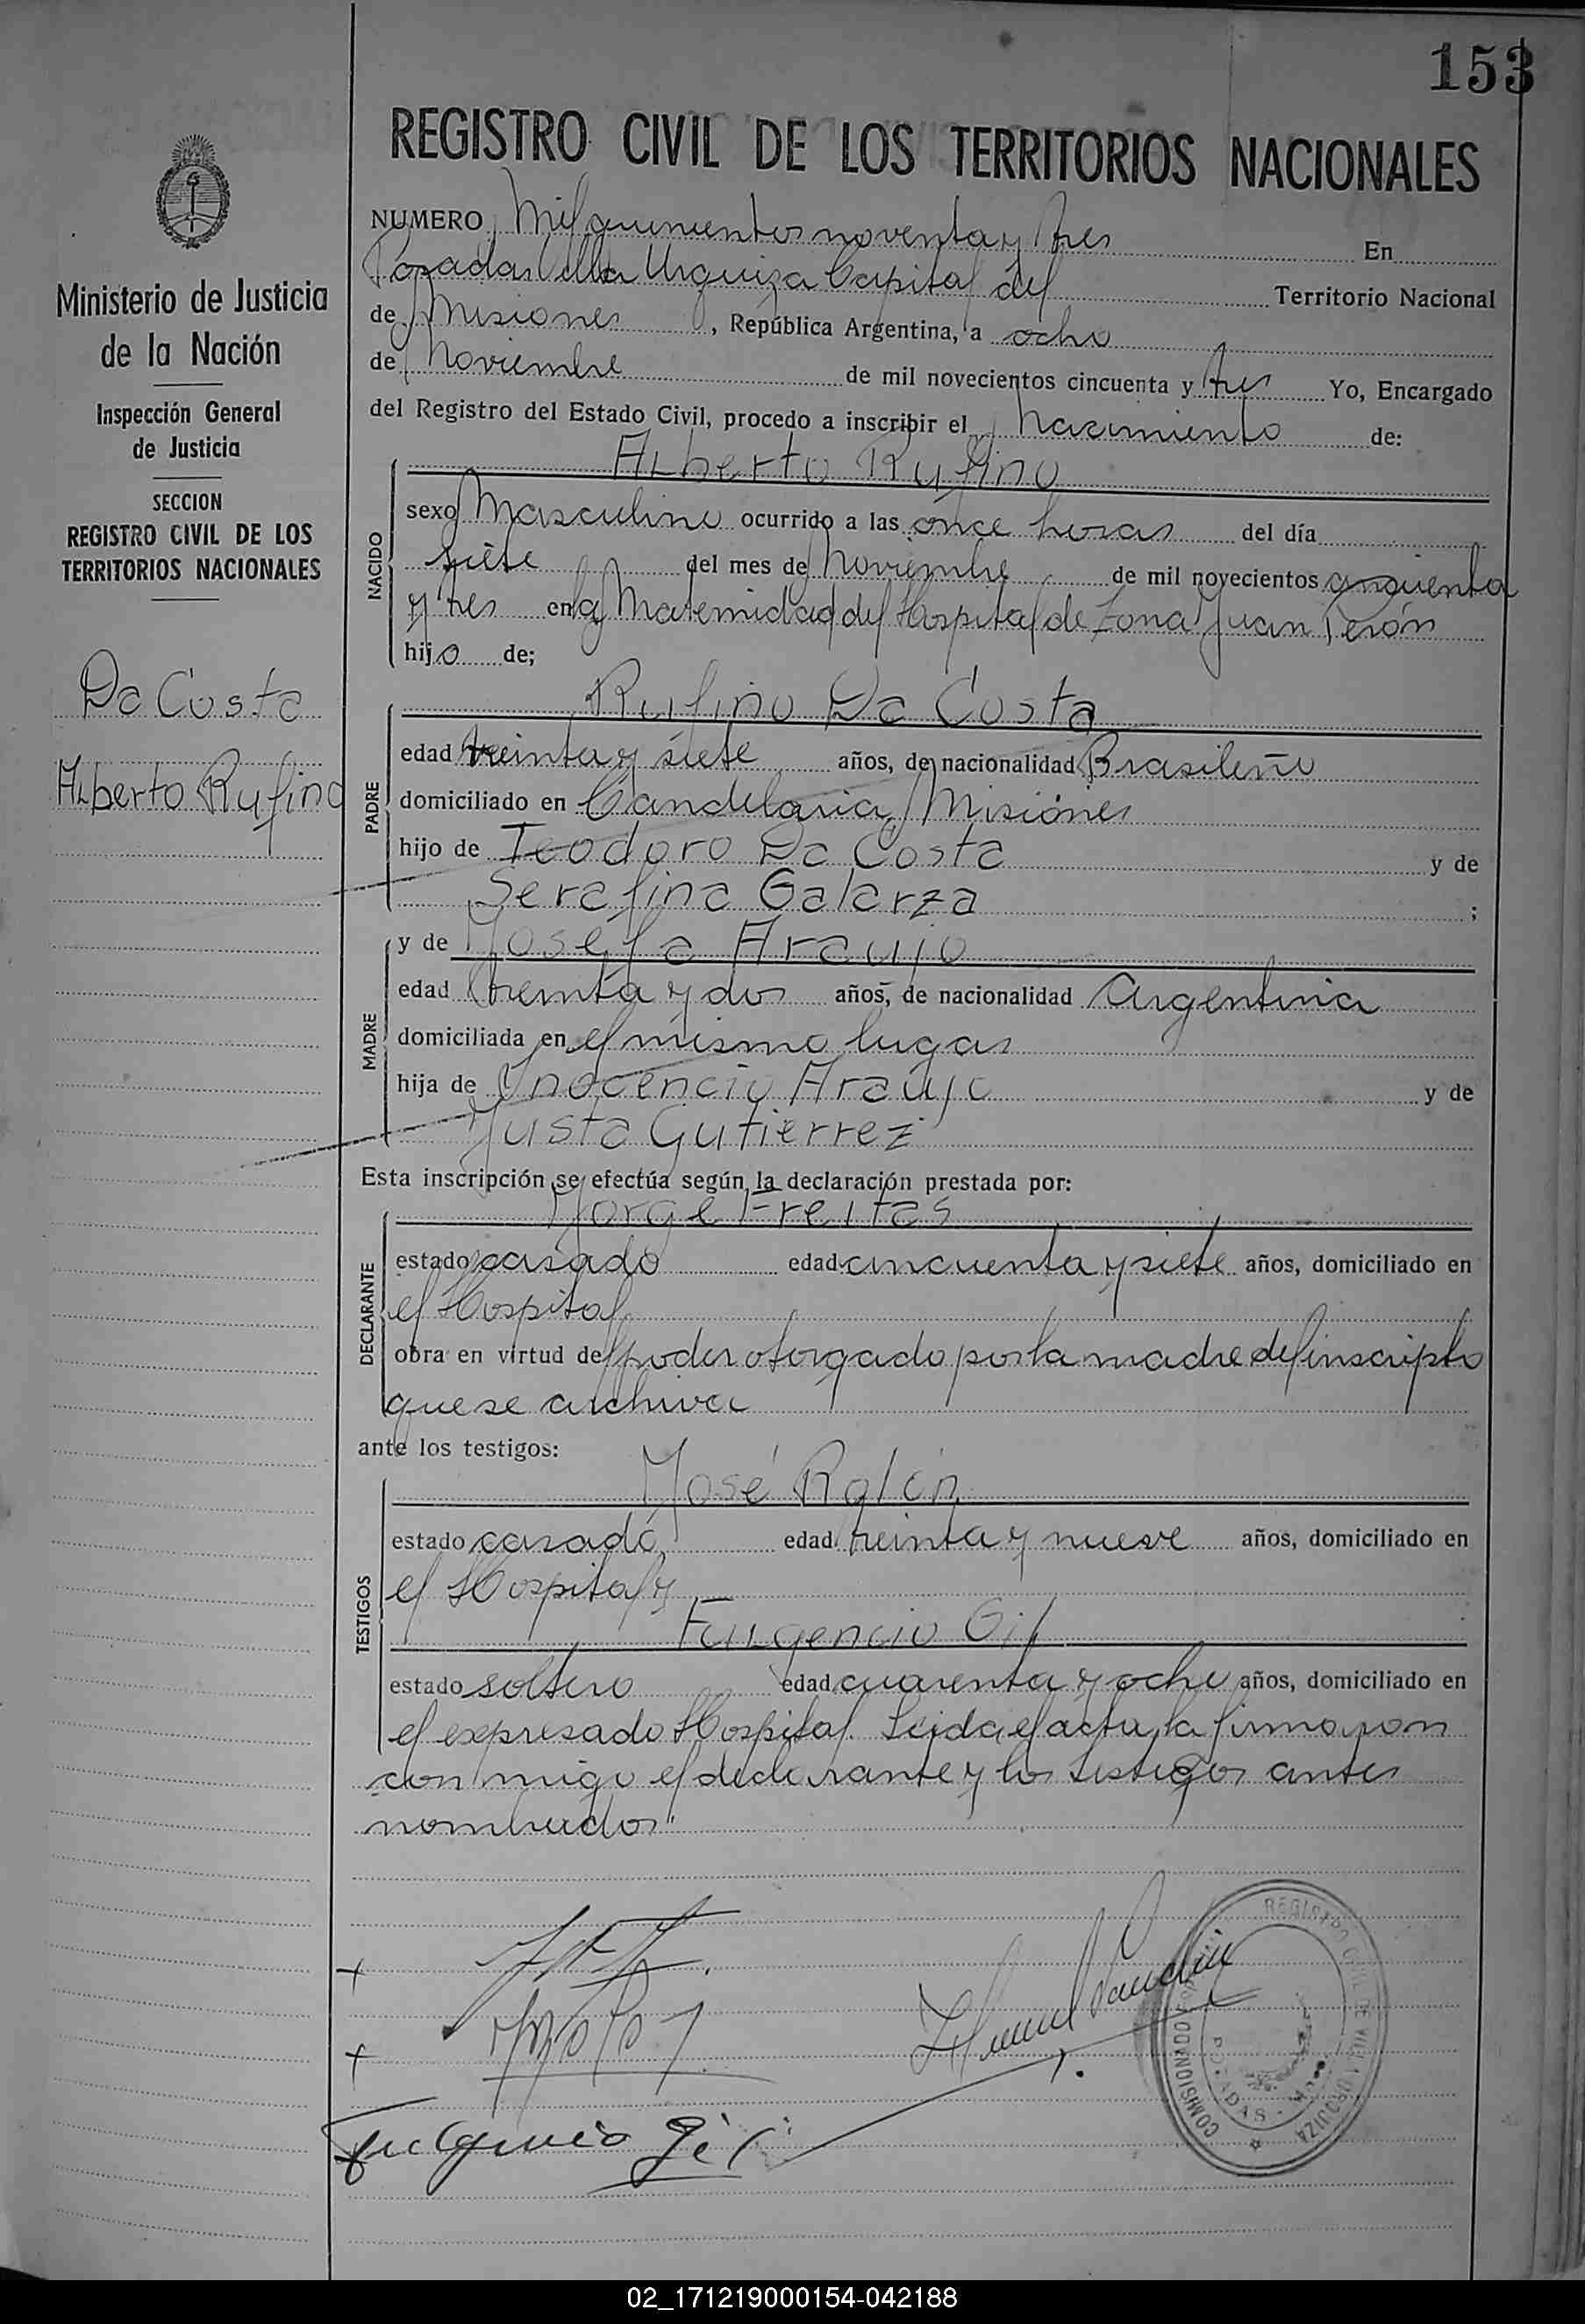 153
REGISTRO CIVIL DE LOS TERRITORIOS NACIONALES
Ministerio de Justicia
de la Nación
Inspección General
de Justicia
SECCION
REGISTRO CIVIL DE LOS
TERRITORIOS NACIONALES
Da Costa
Alberto Rufino
NUMERO Mil quinientos noventa y tres En
Posadas Villa Urquiza Capital del Territorio Nacional
de Misiones, República Argentina, a ocho
de Noviembre de mil novecientos cincuenta y tres Yo, Encargado
del Registro del Estado Civil, procedo a inscribir el Nacimiento de:
NACIDO
Alberto Rufino
sexo Masculino ocurrido a las once horas del día
siete del mes de Noviembre de mil novecientos cincuenta
y tres en la Maternidad del Hospital de Zona Juan Perón
hijo de;
PADRE
Rufino Da Costa
edad treinta y siete años, de nacionalidad Brasileño
domiciliado en Candelaria, Misiones
hijo de Teodoro Da Costa y de
Serafina Galarza ;
MADRE
y de Josefa Araujo
edad treinta y dos años, de nacionalidad Argentina
domiciliada en el mismo lugar
hija de Inocencio Araujo y de
Justa Gutierrez
Esta inscripción se efectúa según la declaración prestada por:
DECLARANTE
Jorge Freitas
estado casado edad cincuenta y siete años, domiciliado en
el Hospital
obra en virtud del poder otorgado por la madre del inscripto
que se archiva
ante los testigos:
TESTIGOS
José Rolón
estado casado edad treinta y nueve años, domiciliado en
el Hospital y
Fulgencio Gil
estado soltero edad cuarenta y ocho años, domiciliado en
el expresado Hospital. Leida el acta, la firmaron
con migo el declarante y los testigos antes
nombrados"
Fulgencio Gil
REGISTRO CIVIL DE VILLA URQUIZA
COMISIONADO
POSADAS
02_171219000154-042188